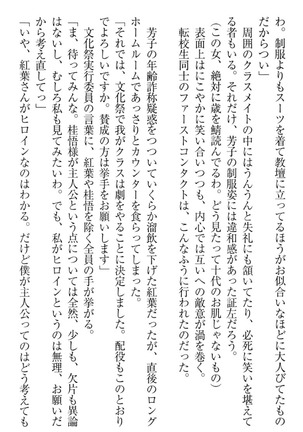 わ。制服よりもスーツを着て教壇に立ってるほうがお似合いなほどに大人びてるん
だからつい」
　周囲のクラスメイトの中にはうんうんと失礼にも頷いてたり、必死に笑いを堪えて
る者もいる。それだけ、芳子の制服姿には違和感があった証左だろう。
（この女、絶対に歳を鯖読んでるわ。どう見たって十代のお肌じゃないもの）
　表面上はにこやかに笑い合いつつも、内心では互いへの敵意が渦を巻く。
　転校生同士のファーストコンタクトは、こんなふうに行われたのだった。
　芳子の年齢詐称疑惑をつついていくらか溜飲を下げた紅葉だったが、直後のロング
ホームルームであっさりとカウンターを食らってしまった。
「それでは、文化祭で我がクラスは劇をやることに決定しました。配役もこのとおり
でよろしいですか。賛成の方は挙手をお願いします」
　文化祭実行委員の言葉に、紅葉や桂悟を除く全員の手が挙がる。
「ま、待ってみんな。桂悟様が主人公という点については全然、少しも、欠片も異論
はないし、むしろ私も見てみたいわ。でも、私がヒロインというのは無理、お願いだ
から考え直してっ」
「いや、紅葉さんがヒロインなのはわかる。だけど僕が主人公ってのはどう考えても